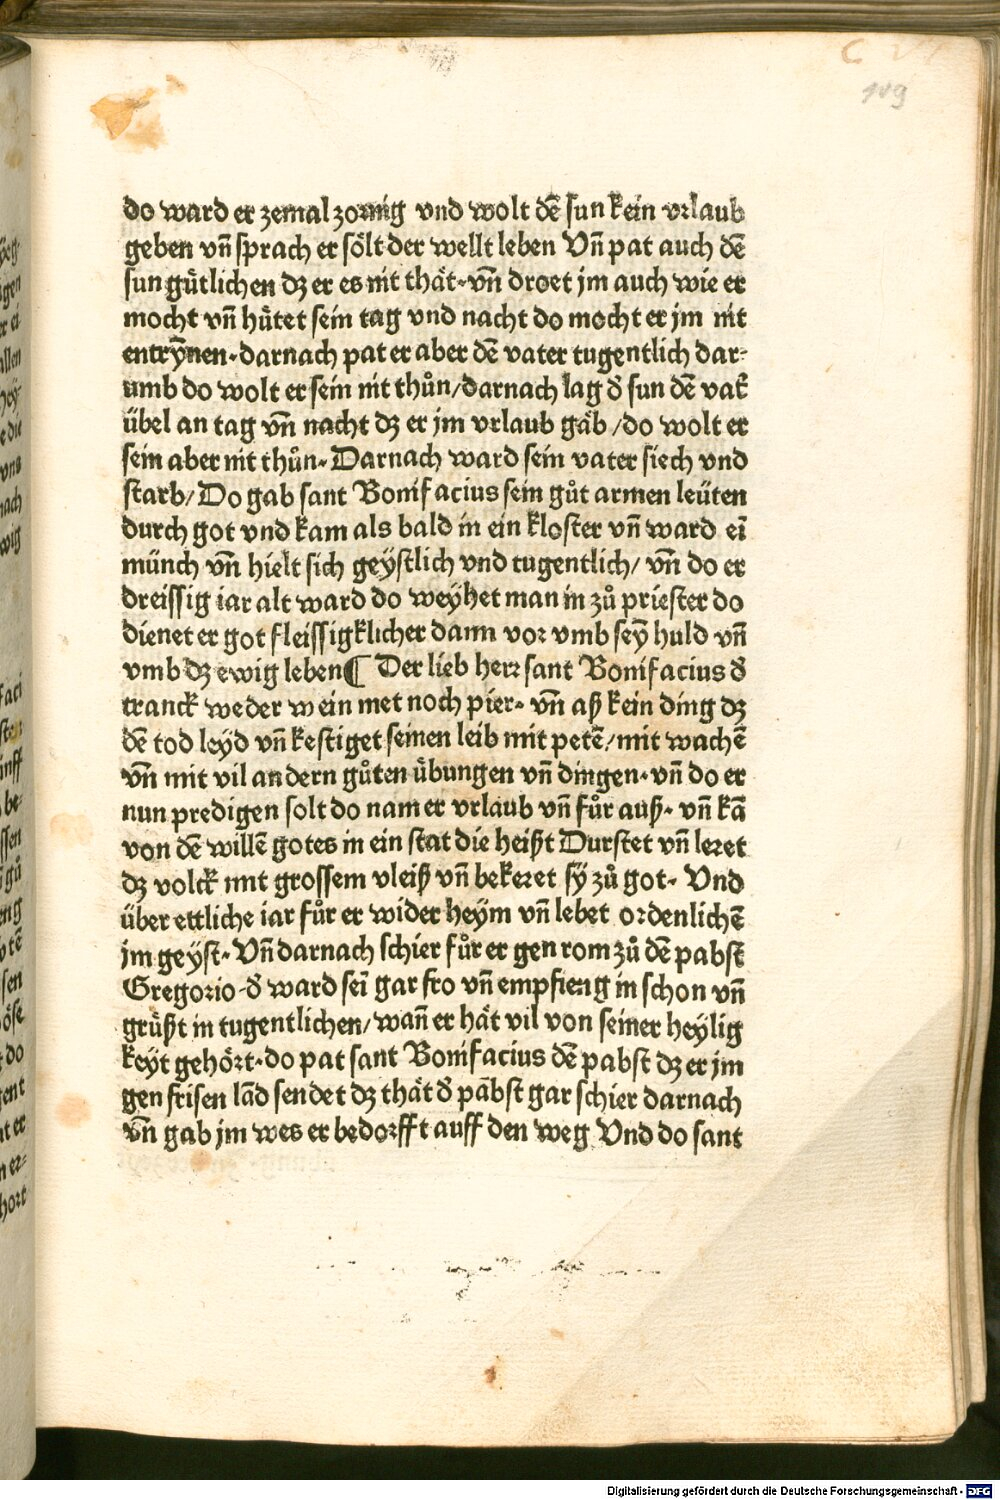 119
do ward er zemal zornig vnd wolt dē sun kein vrlaub
geben vn̄ sprach er sölt der wellt leben Vn̄ pat auch dē
sun gu̇tlichen dz er es nit thät·vn̄ droet jm auch wie er
mocht vn̄ hütet sein tag vnd nacht do mocht er jm nit
entrȳnen·darnach pat er aber dē vater tugentlich dar⸗
umb do wolt er sein nit thůn/darnach lag d̄ sun dē vat̄
übel an tag vn̄ nacht dz er jm vrlaub gäb/do wolt er
sein aber nit thůn· Darnach ward sein vater siech vnd
starb/Do gab sant Bonifacius sein gůt armen leüten
durch got vnd kam als bald in ein kloster vn̄ ward eī
münch vn̄ hielt sich geÿstlich vnd tugentlich/ vn̄ do er
dreissig iar alt ward do weÿhet man in zů priester do
dienet er got fleissigklicher dann vor vmb seȳ huld vn̄
vmb dz ewig leben¶ Der lieb herr sant Bonifacius d̄
tranck weder wein met noch pier· vn̄ aß kein ding dz
dē tod leÿd vn̄ kestiget seinen leib mit petē/mit wachē
vn̄ mit vil andern gůten übungen vn̄ dingen·vn̄ do er
nun predigen solt do nam er vrlaub vn̄ fůr auß· vn̄ kā
von dē willē gotes in ein stat die heißt Durstet vn̄ leret
dz volck mit grossem vleiß vn̄ bekeret sÿ zů got· Vnd
über ettliche iar fůr er wider heÿm vn̄ lebet ordenlichē
jm geÿst· Vn̄ darnach schier fůr er gen rom zů dē pabst
Gregorio·d̄ ward seī gar fro vn̄ empfieng in schon vn̄
grüßt in tugentlichen/wan̄ er hät vil von seiner heÿlig
keÿt gehört·do pat sant Bonifacius dē pabst dz er jm
gen frisen lād sendet dz thät d̄ pabst gar schier darnach
vn̄ gab jm wes er bedorfft auff den weg Vnd do sant
Digitalisierung gefördert durch die Deutsche Forschungsgemeinschaft - DFG